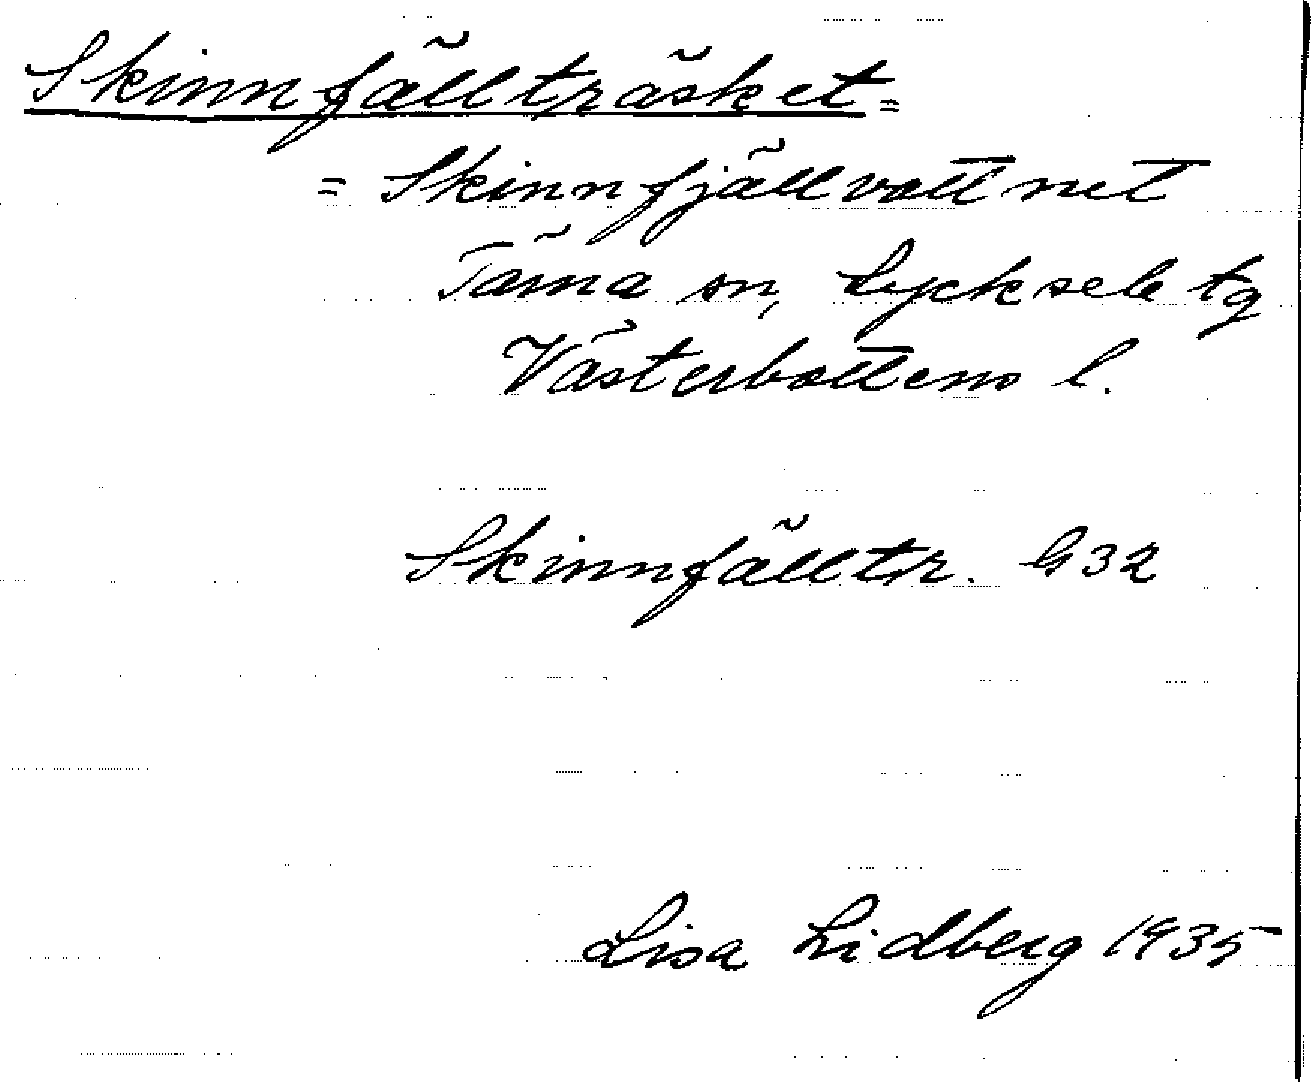 Skinnfällträsket =
= Skinnfjällvattnet
Tärna sn, Lycksele tg
Västerbottens l.
Skinnfälltr. G32
Lisa Lidberg 1935